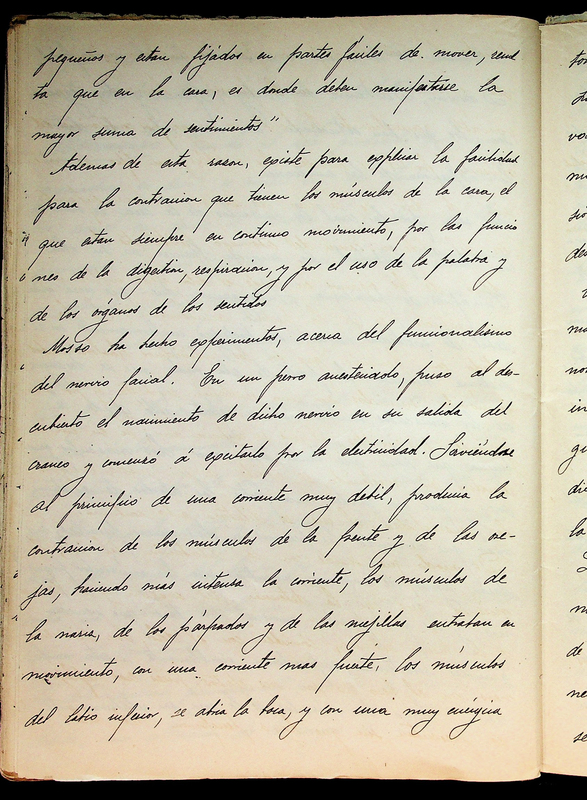 pequeños y estan fijados en partes fáciles de mover, resul
ta que en la cara, es donde deben manifestarse la
mayor suma de sentimientos"
Ademas de esta razon, existe para explicar la facilidad
para la contraccion que tienen los músculos de la cara, el
que estan siempre en contínuo movimiento, por las funcio
nes de la digestion, respiracion, y por el uso de la palabra y
de los órganos de los sentidos
Mosso ha hecho experimentos, acerca del funcionalismo
del nervio facial. En un perro anestesiado, puso al des-
cubierto el nacimiento de dicho nervio en su salida del
craneo y comenzó á excitarlo por la electricidad. Sirviéndose
al principio de una corriente muy debil, producia la
contraccion de los músculos de la frente y de las ore-
jas, haciendo más intensa la corriente, los músculos de
la nariz, de los párpados y de las mejillas entraban en
movimiento, con una corriente mas fuerte, los músculos
del labio inferior, se abria la boca, y con una muy enérgica